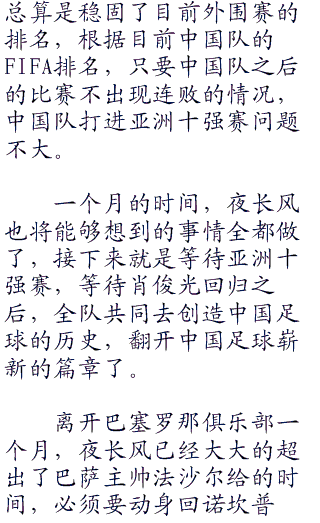 总算是稳固了目前外围赛的
排名，根据目前中国队的
FIFA排名，只要中国队之后
的比赛不出现连败的情况，
中国队打进亚洲十强赛问题
不大。
一个月的时间，夜长风
也将能够想到的事情全都做
了，接下来就是等待亚洲十
强赛，等待肖俊光回归之
后，全队共同去创造中国足
球的历史，翻开中国足球崭
新的篇章了。
离开巴塞罗那俱乐部一
个月，夜长风已经大大的超
出了巴萨主帅法沙尔给的时
间，必须要动身回诺坎普